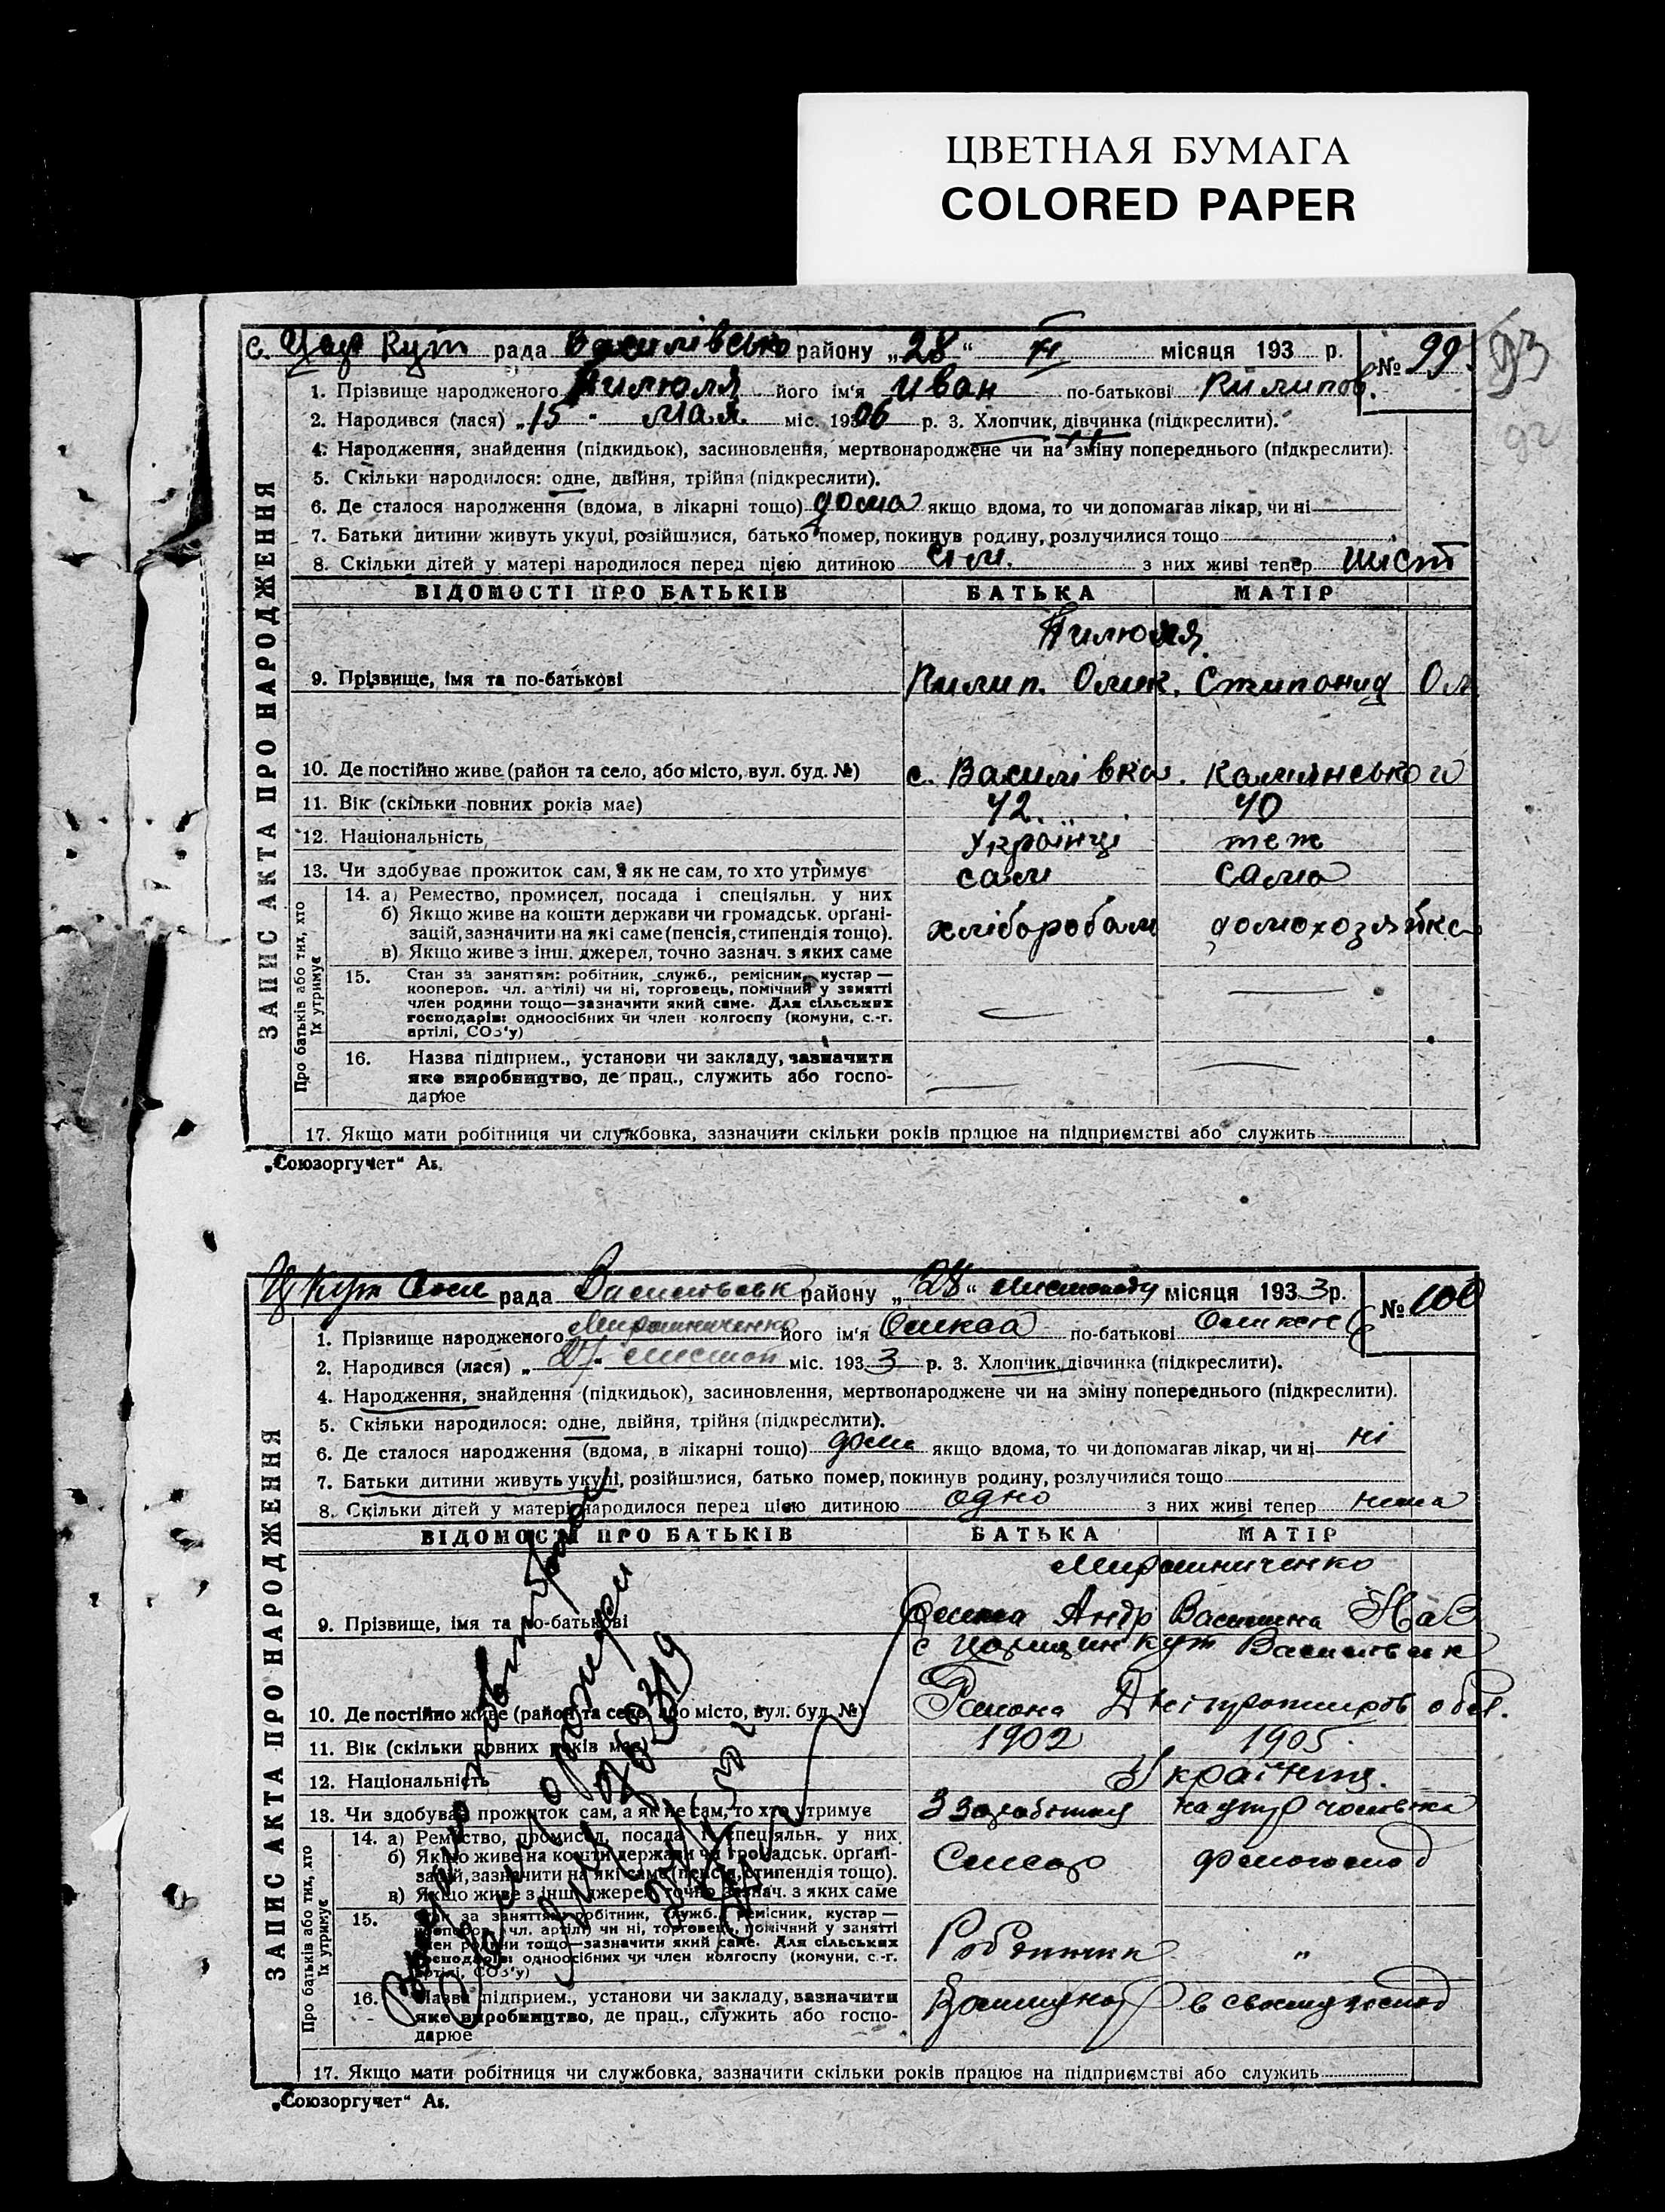 ЦВЕТНАЯ БУМАГА
COLORED PAPER
с. Цар Кут рада Василівсько району „28“ XI місяця 193 р. № 99.
1. Прізвище народженого його ім'я Иван по-батькові Пилипов.
2. Народився (лася) „15 " Мая міс. 19306 р. 3. Хлопчик, дівчинка (підкреслити).
4. Народження, знайдення (підкидьок), засиновлення, мертвонароджене чи на зміну попереднього (підкреслити).
5. Скільки народилося: одне, двійня, трійня (підкреслити).
6. Де сталося народження (вдома, в лікарні тощо) дома якщо вдома, то чи допомагав лікар, чи ні
7. Батьки дитини живуть укупі, розійшлися, батько помер, покинув родину, розлучилися тощо
8. Скільки дітей у матері народилося перед цією дитиною сім. з них живі тепер шист
ЗАПИС АКТА ПРО НАРОДЖЕННЯ
ВІДОМОСТІ ПРО БАТЬКІВ БАТЬКА МАТІР
9. Прізвище, імя та по-батькові Пилип. Олик. Степонид Ол
10. Де постійно живе (район та село, або місто, вул. буд. №) с. Василівка.
11. Вік (скільки повних років має) 42 40
12. Національність Українці теж
13. Чи здобуває прожиток сам, а як не сам, то хто утримує сам сама
Про батьків або тих, хто їх утримує
14. а) Ремество, промисел, посада і спеціяльн. у них
б) Якщо живе на кошти держави чи громадськ. орґані-
зацій, зазначити на які саме (пенсія, стипендія тощо). хліборобам домохозяйка
в) Якщо живе з інш. джерел, точно зазнач. з яких саме
15. Стан за заняттям: робітник, служб., ремісник, кустар —
кооперов. чл. артілі) чи ні, торговець, помічний у занятті
член родини тощо—зазначити який саме. Для сільських
господарів: одноосібних чи член колгоспу (комуни, с.-г.
артілі, СОЗ'у)
16. Назва підприєм., установи чи закладу, зазначити
яке виробництво, де прац., служить або госпо-
дарює
17. Якщо мати робітниця чи службовка, зазначити скільки років працює на підприємстві або служить
„Союзоргучет“ Аз.
Ц Кут рада Василівськ району „28“ листопаду місяця 1933 р. № 100
1. Прізвище народженого Мирошниченко його ім'я Олекса по-батькові
2. Народився (лася) „27" листоп міс. 1933 р. 3. Хлопчик, дівчинка (підкреслити).
4. Народження, знайдення (підкидьок), засиновлення, мертвонароджене чи на зміну попереднього (підкреслити).
5. Скільки народилося: одне, двійня, трійня (підкреслити).
6. Де сталося народження (вдома, в лікарні тощо) дома якщо вдома, то чи допомагав лікар, чи ні ні
7. Батьки дитини живуть укупі, розійшлися, батько помер, покинув родину, розлучилися тощо
8. Скільки дітей у матері народилося перед цією дитиною одно з них живі тепер нема
ЗАПИС АКТА ПРО НАРОДЖЕННЯ
ВІДОМОСТІ ПРО БАТЬКІВ БАТЬКА МАТІР
Мирошниченко
9. Прізвище, імя та по-батькові Олекса Андр Василина
с Царицин кут Василівськ
10. Де постійно живе (район та село, або місто, вул. буд. №) Району Дніпропетров обл.
11. Вік (скільки повних років має) 1902 1905
12. Національність Українці.
13. Чи здобуває прожиток сам, а як не сам, то хто утримує З заробітку на утр чоловіка
Про батьків або тих, хто їх утримує
14. а) Ремество, промисел, посада і спеціяльн. у них
б) Якщо живе на кошти держави чи громадськ. орґані-
зацій, зазначити на які саме (пенсія, стипендія тощо). Слесар домогоспод
в) Якщо живе з інш. джерел, точно зазнач. з яких саме
15. Стан за заняттям: робітник, служб., ремісник, кустар —
кооперов. чл. артілі) чи ні, торговець, помічний у занятті
член родини тощо—зазначити який саме. Для сільських
господарів: одноосібних чи член колгоспу (комуни, с.-г.
артілі, СОЗ'у)
Робітник "
16. Назва підприєм., установи чи закладу, зазначити
яке виробництво, де прац., служить або госпо-
дарює
в своему господ
17. Якщо мати робітниця чи службовка, зазначити скільки років працює на підприємстві або служить
„Союзоргучет“ Аз.